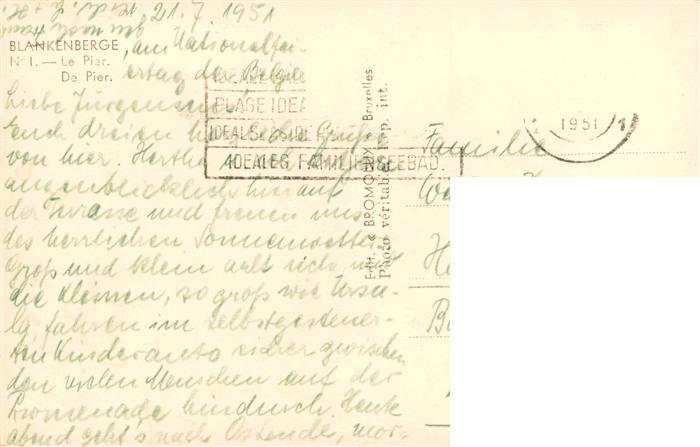 21.7 1951
BLANKENBERGE
N° 1. — Le Pier.
De Pier.
am Nationalfei-
ertag der Belgier
Liebe Jürgensens!
Euch dreien liebe Grüße
von hier.
augenblicklich hier auf
der Terrasse und freuen uns
des herrlichen Sonnenwetters
Groß und klein aalt sich und
die Kleinen, so groß wie Ursu-
la fahren im selbstgesteuer-
ten Kinderauto sicher zwischen
den vielen Menschen auf der
Promenade hindurch. Heute
abend geht's nach Ostende, mor-
PLAGE IDEA
IDEALES FAMILIENSEEBAD.
1951
Edit. « BROMOLUX » Bruxelles
Photo véritable. Imp. int.
Familie